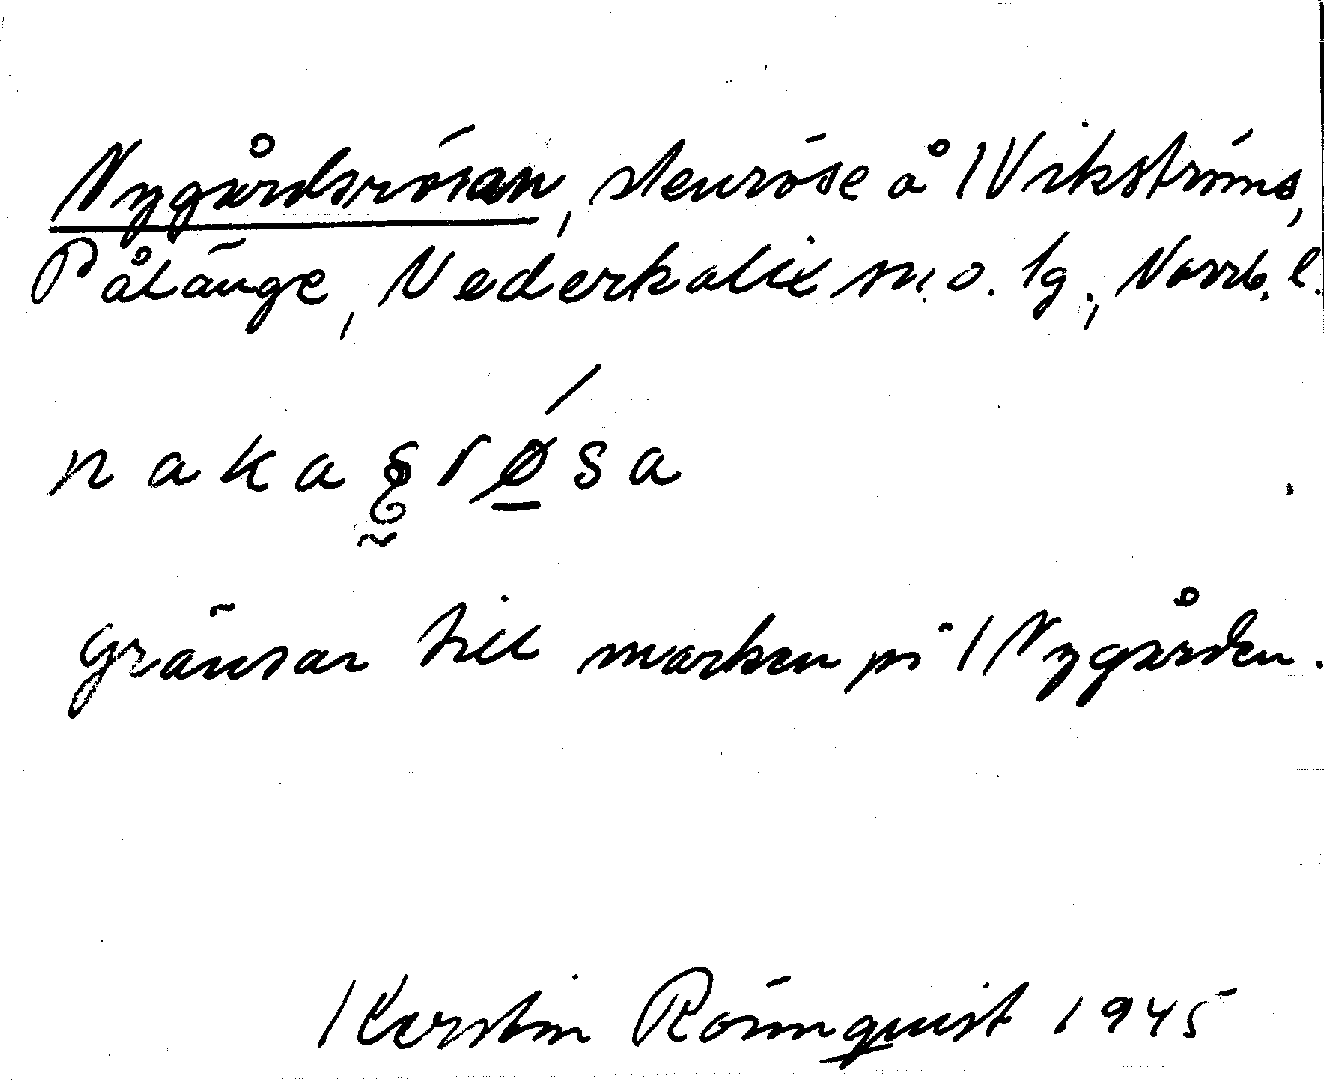 Nygårdsrösan, stenröse å /Vikströms,
Pålänge, Nederkalix sn. o. tg., Norrb. l.
gränsar till marken på /Nygården.
Kerstin Rönnquist 1945